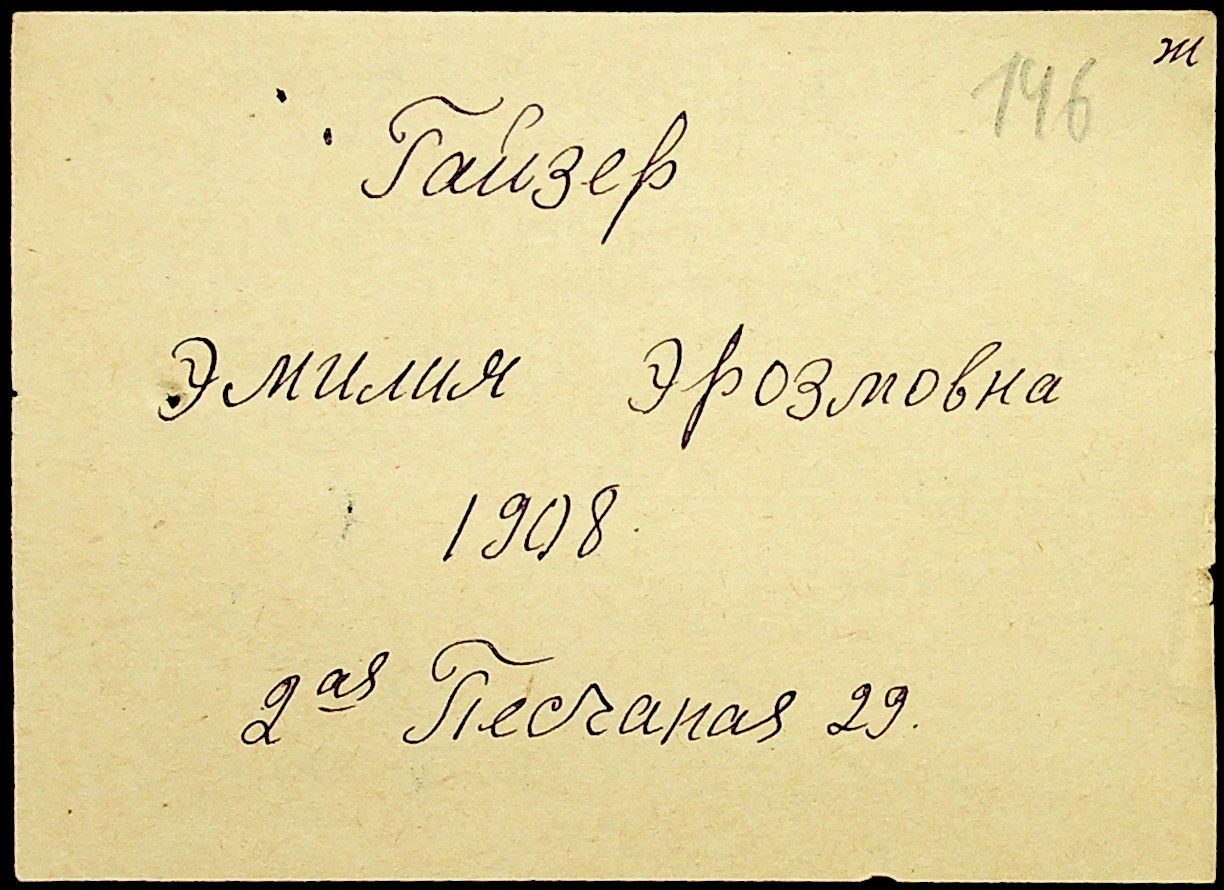 ж
146
Гайзер
Эмилия Эрозмовна
1908
2ая Песчаная 29.